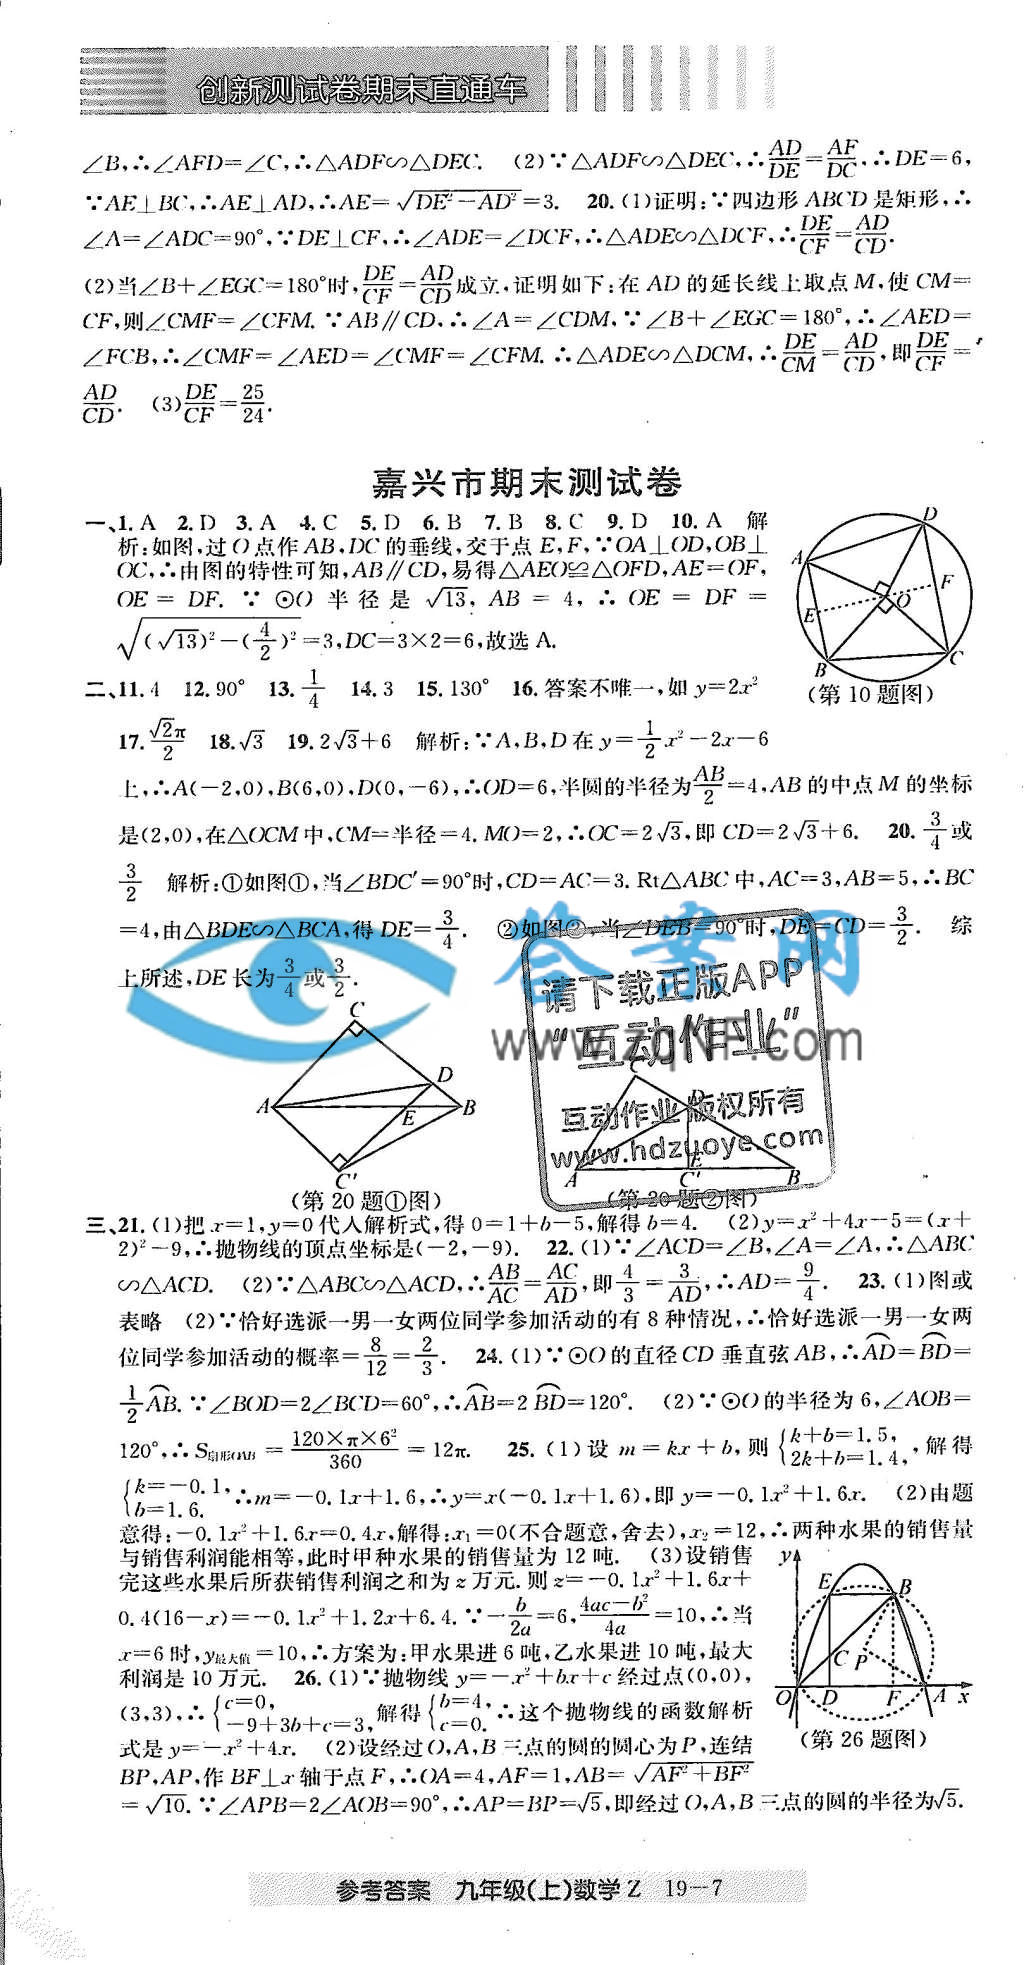 创新测试卷期末直通车
∠B,∴∠AFD=∠C,∴△ADF∽△DEC. (2)∵△ADF∽△DEC,∴AD/DE=AF/DC,∴DE=6,
∵AE⊥BC,∴AE⊥AD,∴AE=√(DE²-AD²)=3. 20.(1)证明:∵四边形ABCD是矩形,∴
∠A=∠ADC=90°,∵DE⊥CF,∴∠ADE=∠DCF,∴△ADE∽△DCF,∴DE/CF=AD/CD.
(2)当∠B+∠EGC=180°时,DE/CF=AD/CD成立,证明如下:在AD的延长线上取点M,使CM=
CF,则∠CMF=∠CFM.∵AB∥CD,∴∠A=∠CDM,∵∠B+∠EGC=180°,∴∠AED=
∠FCB,∴∠CMF=∠AED=∠CMF=∠CFM.∴△ADE∽△DCM,∴DE/CM=AD/CD,即DE/CF=
AD/CD. (3)DE/CF=25/24.
嘉兴市期末测试卷
一、1.A 2.D 3.A 4.C 5.D 6.B 7.B 8.C 9.D 10.A 解
析:如图,过O点作AB,DC的垂线,交于点E,F,∵OA⊥OD,OB⊥
OC,∴由图的特性可知,AB∥CD,易得△AEO≌△OFD,AE=OF,
OE=DF.∵⊙O半径是√13,AB=4,∴OE=DF=
√((√13)²-(4/2)²)=3,DC=3×2=6,故选A.
D
A
F
O
E
B
C
(第10题图)
二、11.4 12.90° 13.1/4 14.3 15.130° 16.答案不唯一,如y=2x²
17.√2π/2 18.√3 19.2√3+6 解析:∵A,B,D在y=1/2x²-2x-6
上,∴A(-2,0),B(6,0),D(0,-6),∴OD=6,半圆的半径为AB/2=4,AB的中点M的坐标
是(2,0),在△OCM中,CM=半径=4.MO=2,∴OC=2√3,即CD=2√3+6. 20.3/4或
3/2 解析:①如图①,当∠BDC′=90°时,CD=AC=3.Rt△ABC中,AC=3,AB=5,∴BC
=4,由△BDE∽△BCA,得DE=3/4. ②如图②,当∠DEB=90°时,DE=CD=3/2. 综
上所述,DE长为3/4或3/2.
答案网
www.zqnf.com
请下载正版APP
“互动作业”
互动作业 版权所有
www.hdzuoye.com
C
D
A
E
B
C′
(第20题①图)
C
D
E
A
C′
B
(第20题②图)
三、21.(1)把x=1,y=0代入解析式,得0=1+b-5,解得b=4. (2)y=x²+4x-5=(x+
2)²-9,∴抛物线的顶点坐标是(-2,-9). 22.(1)∵∠ACD=∠B,∠A=∠A,∴△ABC
∽△ACD. (2)∵△ABC∽△ACD,∴AB/AC=AC/AD,即4/3=3/AD,∴AD=9/4. 23.(1)图或
表略 (2)∵恰好选派一男一女两位同学参加活动的有8种情况,∴恰好选派一男一女两
位同学参加活动的概率=8/12=2/3. 24.(1)∵⊙O的直径CD垂直弦AB,∴A͡D=B͡D=
1/2A͡B.∵∠BOD=2∠BCD=60°,∴A͡B=2B͡D=120°. (2)∵⊙O的半径为6,∠AOB=
120°,∴S扇形OAB=120×π×6²/360=12π. 25.(1)设m=kx+b,则{k+b=1.5, 2k+b=1.4,,解得
{k=-0.1, b=1.6. ∴m=-0.1x+1.6,∴y=x(-0.1x+1.6),即y=-0.1x²+1.6x. (2)由题
意得:-0.1x²+1.6x=0.4x,解得:x₁=0(不合题意,舍去),x₂=12,∴两种水果的销售量
与销售利润能相等,此时甲种水果的销售量为12吨. (3)设销售
完这些水果后所获销售利润之和为z万元.则z=-0.1x²+1.6x+
0.4(16-x)=-0.1x²+1.2x+6.4.∵-b/2a=6,(4ac-b²)/4a=10,∴当
x=6时,y最大值=10,∴方案为:甲水果进6吨,乙水果进10吨,最大
利润是10万元. 26.(1)∵抛物线y=-x²+bx+c经过点(0,0),
(3,3),∴{c=0, -9+3b+c=3, 解得{b=4, c=0. ∴这个抛物线的函数解析
式是y=-x²+4x. (2)设经过O,A,B三点的圆的圆心为P,连结
BP,AP,作BF⊥x轴于点F,∴OA=4,AF=1,AB=√(AF²+BF²)
=√10.∵∠APB=2∠AOB=90°,∴AP=BP=√5,即经过O,A,B三点的圆的半径为√5.
y
E
B
C
P
O
D
F
A
x
(第26题图)
参考答案 九年级(上)数学Z 19-7